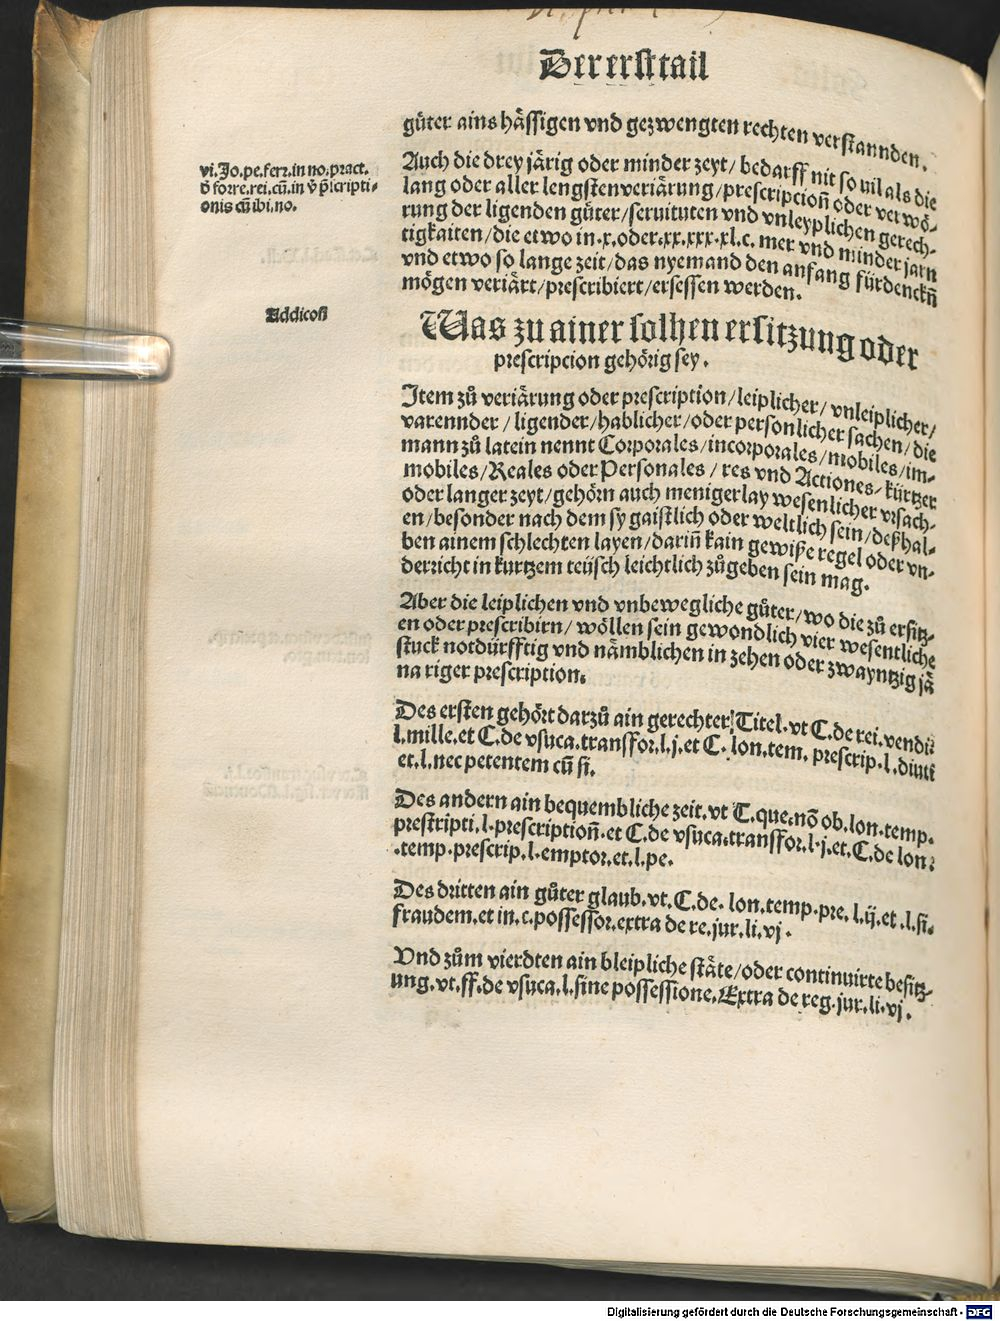 Der erst tail
güter ains hässigen vnd gezwengten rechten verstannden.
vi. Jo. pe. ferr. in no. pract.
onis cū ibi. no.
Auch die drey järig oder minder zeyt/ bedarff nit so uil als die
lang oder aller lengsten veriärung/ prescripcion̄ oder verwö-
rung der ligenden güter/ seruituten vnd vnleyplichen gerech-
tigkaiten/ die etwo in .x. oder .xx. xxx. xl. c. mer vnd minder jarn
vnd etwo so lange zeit/ das nyemand den anfang fürdenckn̄
mögen veriärt/ prescribiert/ ersessen werden.
Addicon̄
Was zu ainer solhen ersitzung oder
prescripcion gehörig sey.
Item zů veriärung oder prescription/ leiplicher/ vnleiplicher/
varennder / ligender/ hablicher/ oder personlicher sachen/ die
mann zů latein nennt Corporales/ incorporales/ mobiles/ im-
mobiles/ Reales oder Personales / res vnd Actiones/ kürtzer
oder langer zeyt/ gehörn auch menigerlay wesenlicher vrsach-
en/ besonder nach dem sy gaistlich oder weltlich sein/ deßhal-
ben ainem schlechten layen/ darin̄ kain gewiße regel oder vn-
derricht in kurtzem teüsch leichtlich zůgeben sein mag.
Aber die leiplichen vnd vnbewegliche güter/ wo die zů ersitz-
en oder prescribirn/ wöllen sein gewondlich vier wesentliche
stuck notdürfftig vnd nämblichen in zehen oder zwayntzig jä
na riger prescription.
Des ersten gehört darzů ain gerechter Titel. vt C. de rei. vendi.
l. mille. et C. de vsuca. transfor. l. j. et C. lon. tem. prescrip. l. diuti
et. l. nec petentem cū si.
Des andern ain bequembliche zeit. vt C. que. nō ob. lon. temp.
prestripti. l. prescription̄. et C. de vsuca. transffor. l. j. et. C. de lon.
.temp. prescrip. l. emptor. et. l. pe.
Des dritten ain gůter glaub. vt. C. de. lon. temp. pre. l. ij. et. l. si.
fraudem. et in. c. possessor. extra de re. jur. li. vj.
Vnd zům vierdten ain bleipliche stäte/ oder continuirte besitz-
ung. vt. ff. de vsuca. l. sine possessione. Extra de reg. jur. li. vj.
Digitalisierung gefördert durch die Deutsche Forschungsgemeinschaft - DFG